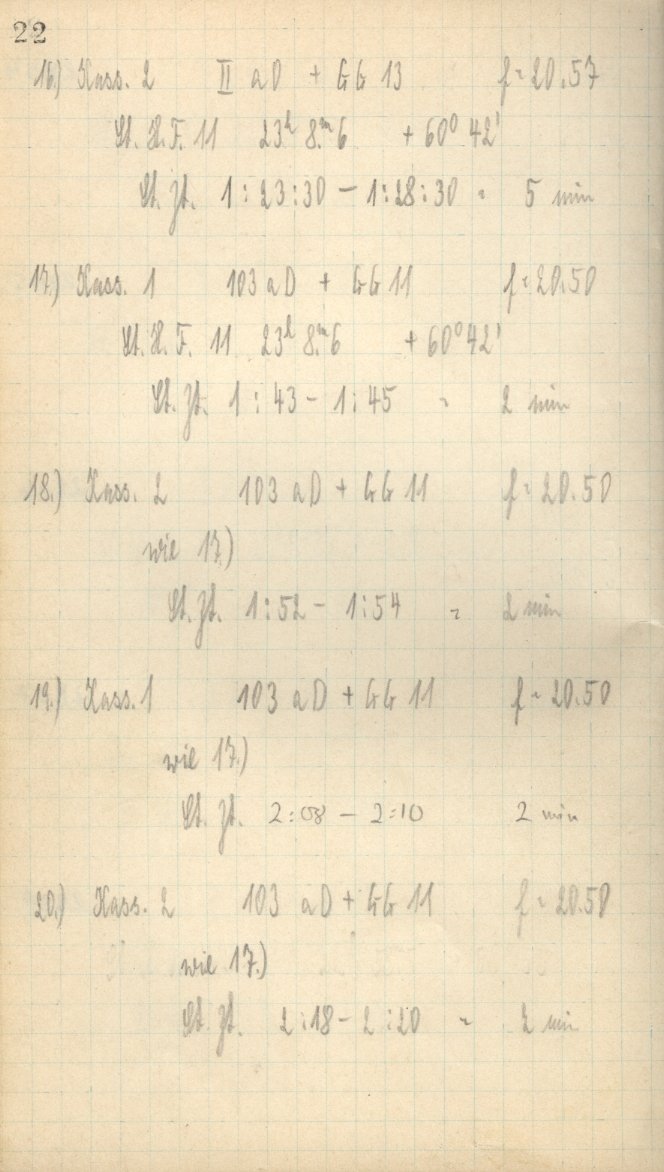 22
16.) Kass. 2 II aD + GG 13 f = 20.57
St. H. F. 11 23h 8.m6 + 60° 42'
St. Zt. 1:23:30 - 1:28:30 = 5 min
17.) Kass. 1 103 aD + GG 11 f = 20.50
St. H. F. 11 23h 8.m6 + 60° 42'
St. Zt. 1:43 - 1:45 = 2 min
18.) Kass. 2 103 aD + GG 11 f = 20.50
wie 17.)
St. Zt. 1:52 - 1:54 = 2 min
19.) Kass. 1 103 aD + GG 11 f = 20.50
wie 17.)
St. Zt. 2:08 - 2:10 2 min
20.) Kass. 2 103 aD + GG 11 f = 20.50
wie 17.)
St. Zt. 2:18 - 2:20 = 2 min